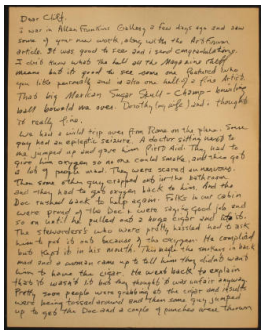 Dear Cliff,
I was in Allan Frumkin Gallery a few days ago and saw
some of your new work, along with the Art Forum
article. It was good to see and I send congratulations.
I don't know what the hell all the Magazine
means but its good to see some one featured who
you like personally and is also one hell of a fine Artist.
That big Mexican Sugar Skull - Champ - bowling
ball bowled me over. Dorothy (my wife) and I thought
it really fine.
We had a wild trip over from Rome on the plane. Some
guy had an epileptic seizure, a doctor sitting next to
me jumped up and gave him First Aid. They had to
give him oxygen so no one could smoke, and then got
a lot of people mad. They were scared and nervous.
Then some other guy crapped out in the bathroom,
and they had to get oxygen back to him. And the
Doc rushed back to help again. Folks in our cabin
were proud of the Doc, were saying good job and
so on until he pulled out a huge cigar and lit it.
The stewardess who were pretty bristled had to ask
him to put it out because of the oxygen. He complied
but kept it in his mouth. This made the in back
mad and a woman came up to tell him they didn't want
him to have the cigar. He went back to explain
that it wasn't lit but they thought it was unfair anyway.
Pretty soon people were grabbing at the cigar and insults
were being voiced around and then some guy jumped
up to get the Doc and a couple of punches were thrown